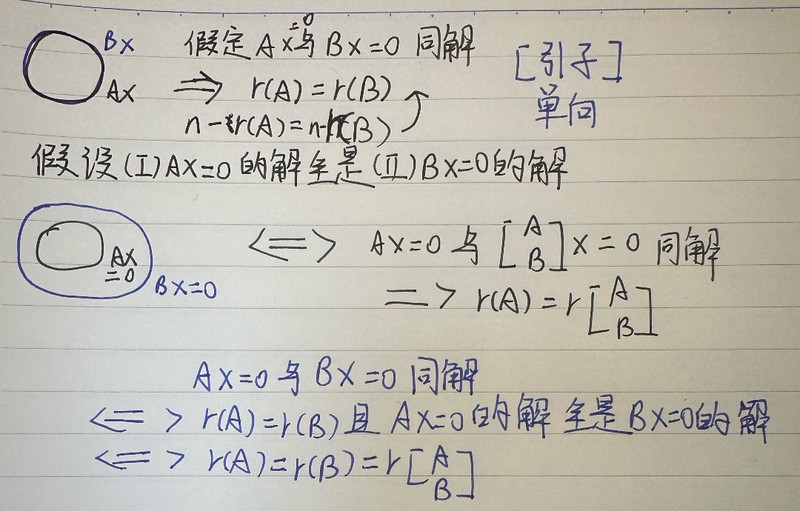 BX
AX
假定AX=0与BX=0同解
⟹ r(A)=r(B)
n-r(A)=n-r(B)
[引子]
单向
假设(I)AX=0的解全是(II)BX=0的解
AX=0
BX=0
<=> AX=0与[A B]x=0同解
=> r(A)=r[A B]
AX=0与BX=0同解
<=> r(A)=r(B)且AX=0的解全是BX=0的解
<=> r(A)=r(B)=r[A B]